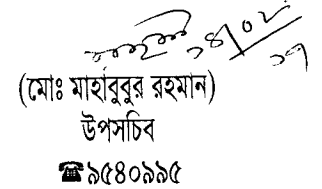 ১৪/০২/১৭
(মোঃ মাহাবুবুর রহমান)
উপসচিব
☎৯৫৪০৯৯৫